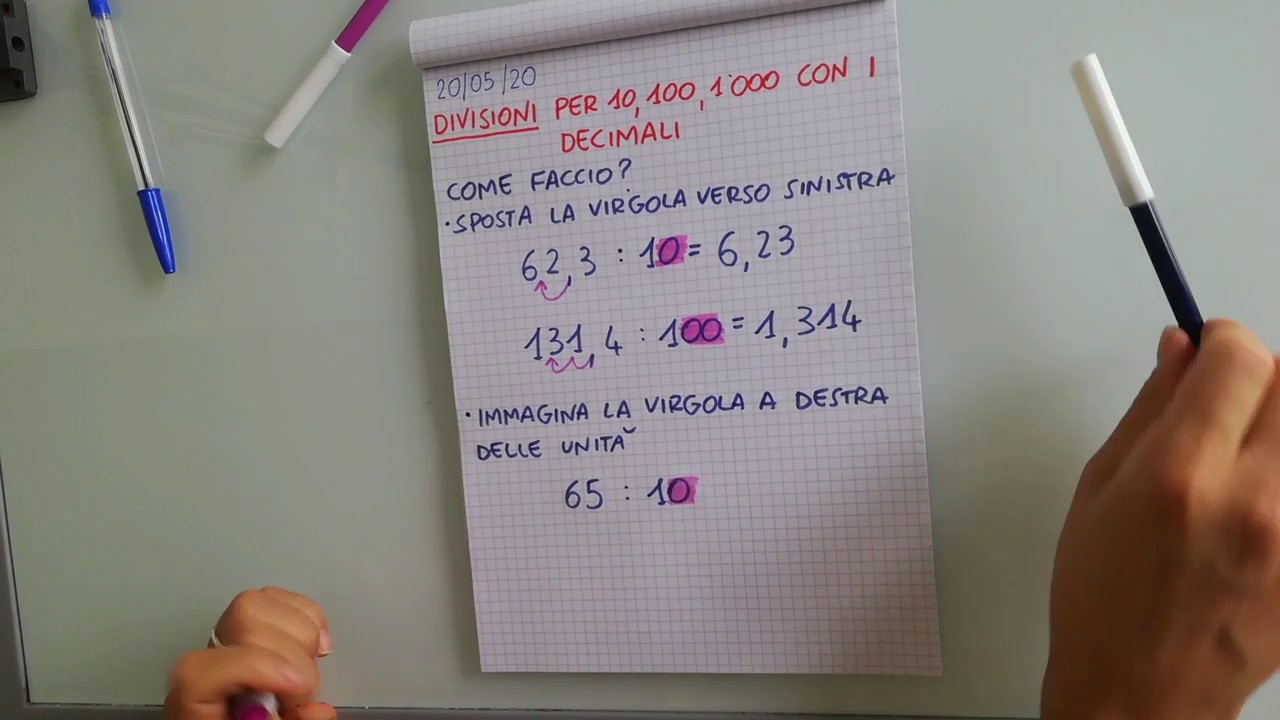 20/05/20
DIVISIONI PER 10, 100, 1'000 CON I
DECIMALI
COME FACCIO?
• SPOSTA LA VIRGOLA VERSO SINISTRA
62,3 : 10 = 6,23
131,4 : 100 = 1,314
• IMMAGINA LA VIRGOLA A DESTRA
DELLE UNITÀ
65 : 10